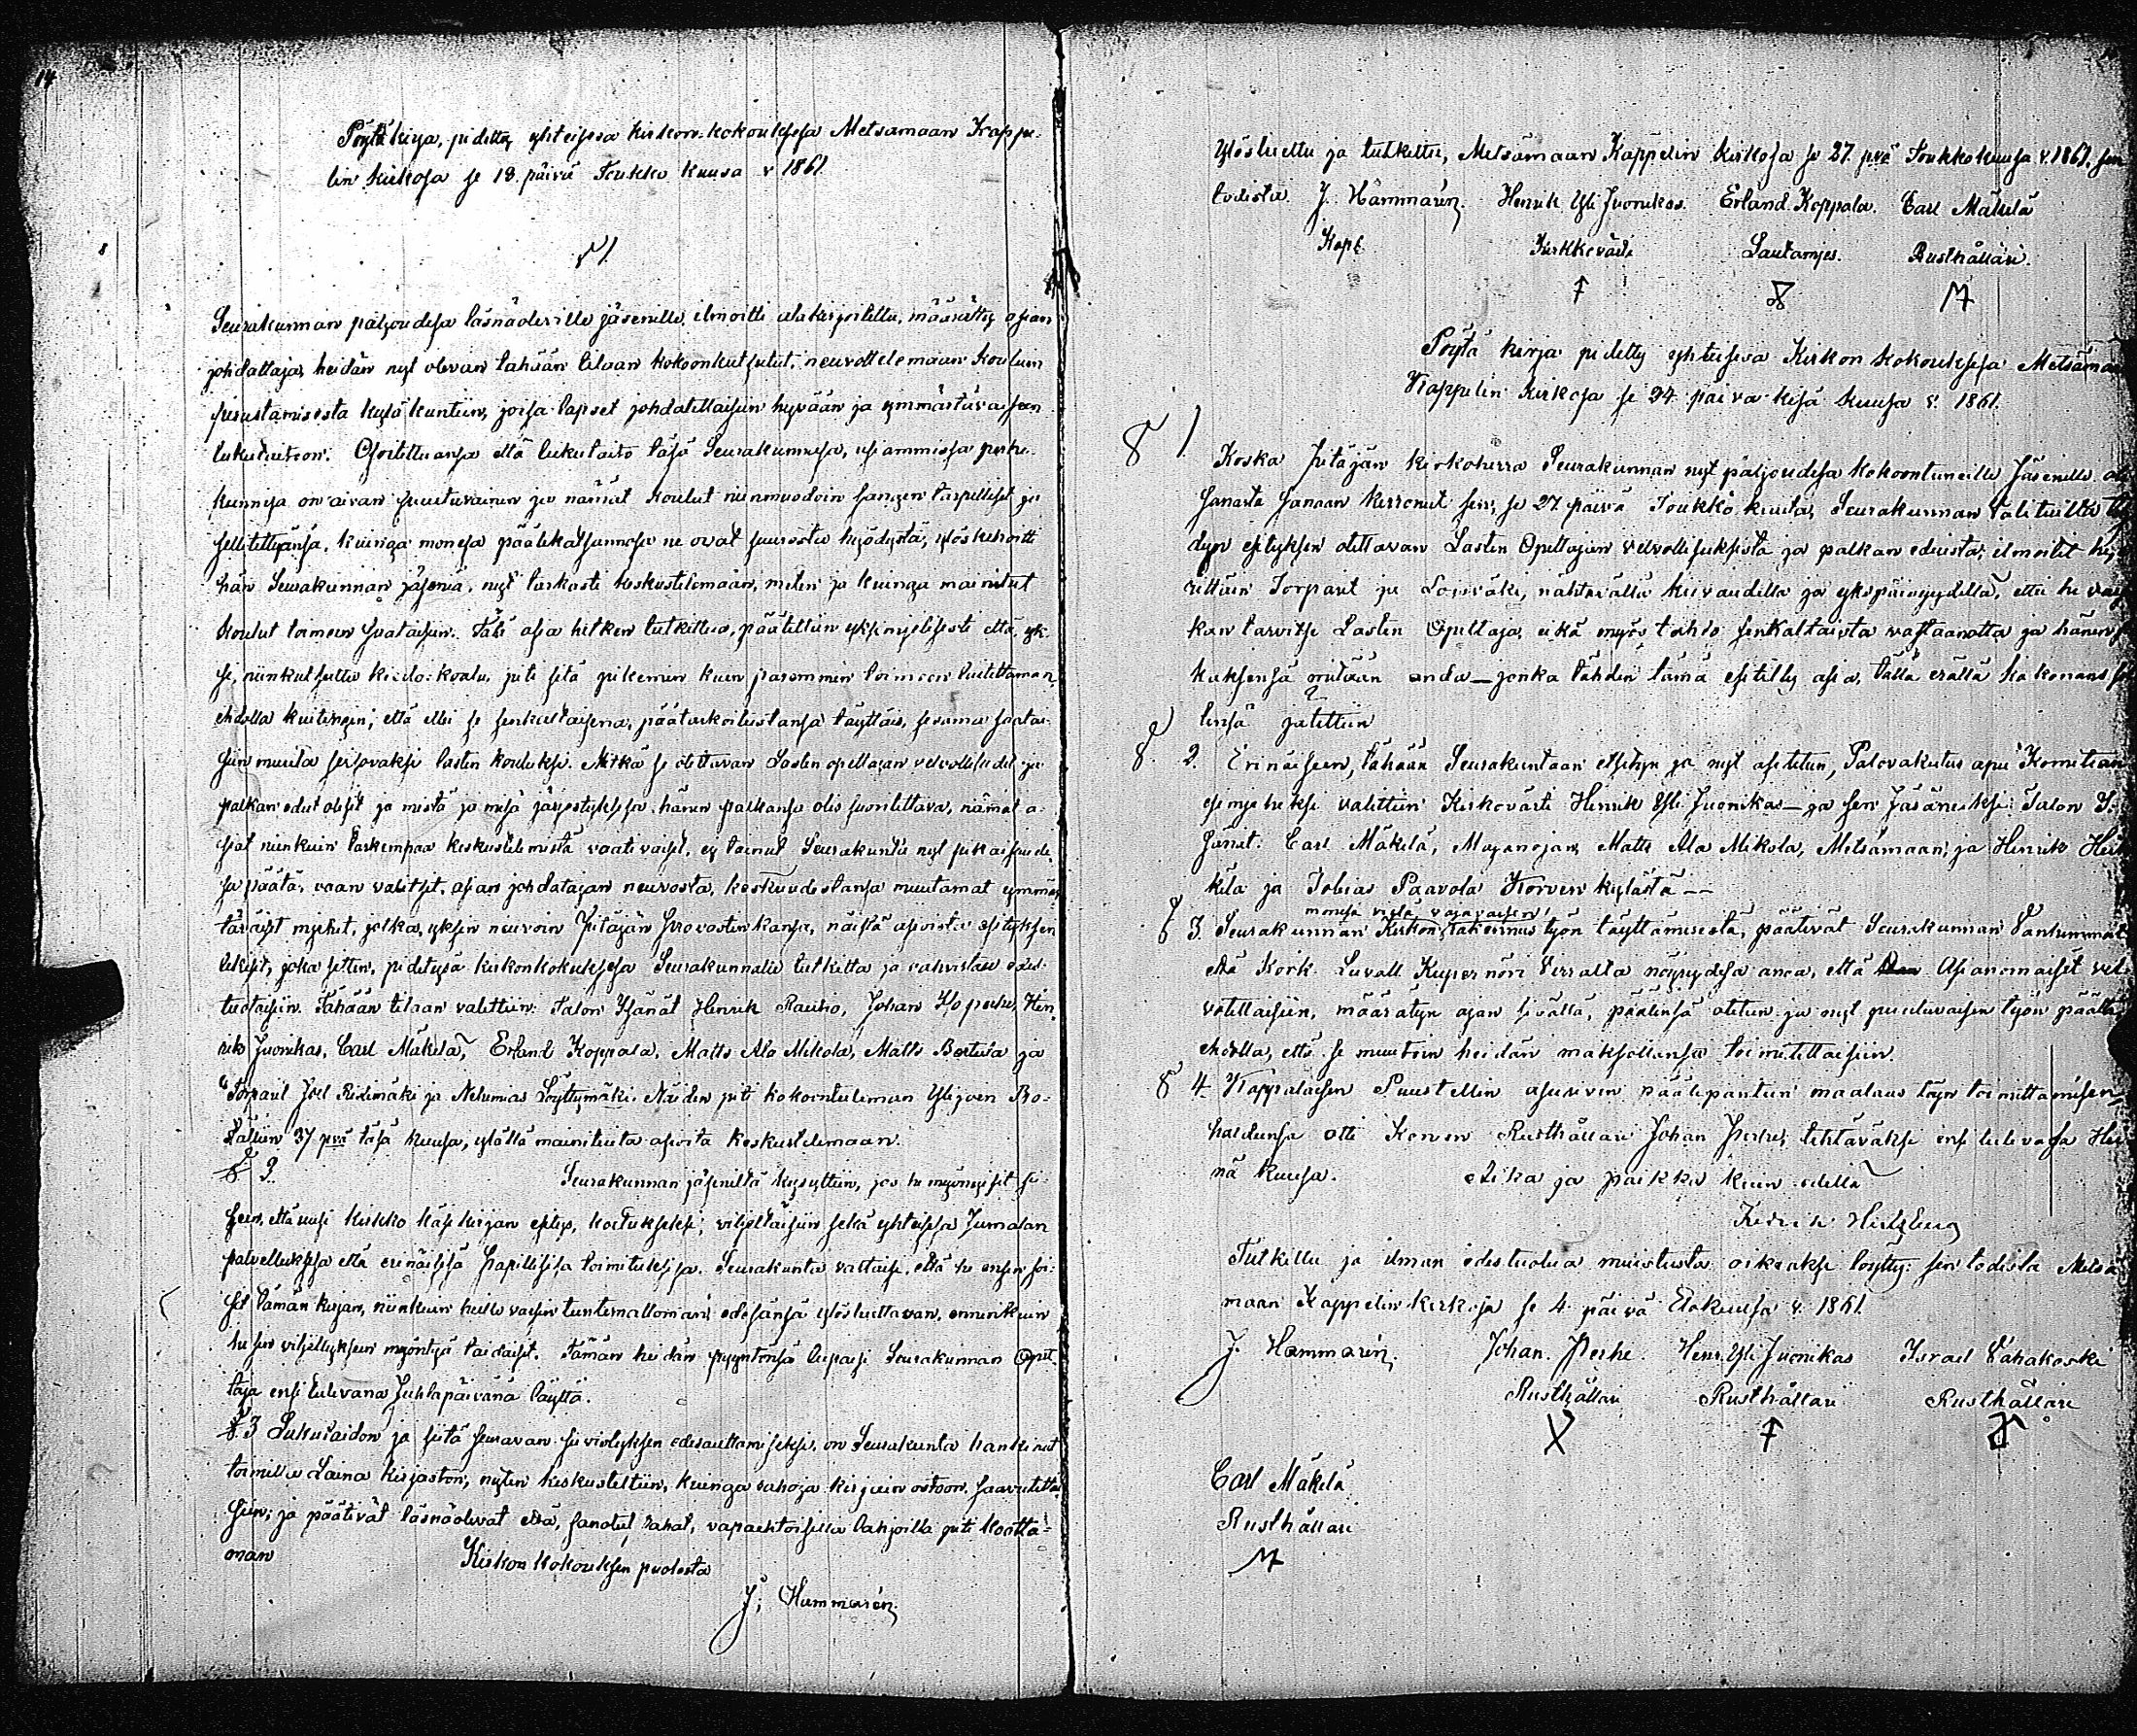 14
Pöytäkirja, pidetty yhteisesä kirkon-kokouksesa Metsämaan Kappe-
lin kirkosa se 18. päivä Toukko kuusa v 1861
§ 1.
Seurakunnan paljoudesa läsnäoleville jäsenille, ilmoitti alakirjoitettu, määrätty asian
johdattaja, heidän nyt olevan tähään tilaan kokoonkutsutut, neuvottelemaan koulun
perustamisesta kyläkuntiin, joisa lapset johdatettaisiin hyvään ja ymmärtäväiseen
lukutaitoon. Osoitettuansa että lukutaito täsä Seurakunnasa, useammissa perhe-
kunnisa on aivan puuttuvainen ja nämät koulut niinmuodoin sangen tarpelliset ja
sellitettyänsä, kuinga monesa päälikatsannosa ne ovat suuresta hyödystä, ylöskehoitti
hän Seurakunnan jäseniä, nyt tarkasti keskustelemaan, miten ja kuinga mainitut
koulut toimeen saataisiin. Tätä asia hetken tutkittua, päätettiin yksimielisesti että, yk-
si, niinkutsuttu kierto-koulu, piti sitä pikemin kuin paremmin toimeen laitettaman,
ehdolla kuitengin, että ellei se senkaltaisena, päätarkoitustansa täyttäis, se sama saatai-
siin muuta seisovaksi lasten kouluksi. Mitkä se otettavan Lasten opettajan velvollisudet ja
palkan edut olisit ja mistä ja mesä järjestyksesä hänen palkansa olis suoritettava, nämät a-
siat niinkuin tarkempaa keskustelemista vaativaiset, ei tainut Seurakunta nyt pikaisuude-
sa päätä, vaan valitsit, asian johdatajan neuvosta, keskuudestansa muutamat ymmär-
täväist miehet, jotka, yksin neuvoin Pitäjän Provastin kansa, näistä asioista esityksen
tekisit, joka sitten, pidetysä kirkonkokouksesa Seurakunnalle tutkitta ja vahvistaa edes-
tuotaisiin. Tähään tilaan valittiin: Talon Isänät Henrik Rauhio, Johan Isoperhe, Hen-
rik Juonikas, Carl Mäkelä, Erland Koppala, Matts Ala Mikola, Matts Bertula ja
Torparit Joel Ridimäki ja Nehemias Löyttymäki. Näiden piti kokoontuleman Ylijoen Ro-
stalliin 27 pvä täsä kuusa, ylällä mainituita asioita keskustelemaan.
§ 2.
Seurakunnan jäseniltä kysyttiin, jos he myönnyisit sii-
hen, että uusi kirkko käsikirjan esitys, koetukseksi, viljeltäisiin sekä yhteisesä Jumalan
palveluksesa että erinäisisä papillisisa toimituksisa. Seurakunta vastaisi, että he ensin soi-
sit tämän kirjan, niinkuin heille varsin tuntemattoman, edesänsä ylösluettavan, ennenkuin
he sen viljellykseen myöntyä taidaisit. Tämän heidän pyyntönsä lupaisi Seurakunnan Opet-
taja ensi tulevana Juhlapäivänä täyttä.
§. 3 Lukutaidon ja siitä seuravan sivistyksen edesauttamiseksi, on Seurakunta hankinut
toimelle Laina kirjaston, nyten keskusteltiin, kuinga rahoja kirjain ostoon, saavutettai-
siin, ja päätivät läsnäolevat että, sanotut rahat, vapaehtoisilla lahjoilla piti kootta-
man
Kirkon kokouksen puolesta
J; Hammarén
Ylösluettu ja tutkittu, Metsämaan Kappelin kirkosa se 27. pvä Toukkokuusa v. 1861, sen
todista. J. Hammarén. Henrik Yli Juonikas. Erland Koppala. Carl Mäkelä
Kapl. Kirkkoväärti Lautamies. Rusthållari.
Pöytä kirja pidetty yhteisesä Kirkon kokouksesa Metsämaan
Kappelin kirkosa se 24 päivä kesä kuusa v. 1861.
§ 1
Koska Pitäjän kirkoherra Seurakunnan nyt paljoudesa kokoontuneille Jäsenille oli
sanasta sanaan kerronut sen, se 27 päivä Toukko kuuta, Seurakunnan valituilta
dyn esityksen otettavan Lasten Opettajan velvollisuksista ja palkan eduista, ilmoitit he,
rittäin Torparit ja Loisväki, nähtävällä kiivaudella ja ykspäisyydellä, ettei he
kan tarvitse Lasten Opettaja, eikä myös tahdo senkaltaista vastaanotta ja hänen
kuksensa mitään anda — jonka tähden tämä esitelty asia, tällä erällä kokonans
lensä jätettiin
§. 2. Erinäiseen, tähään Seurakuntaan esitetyn ja nyt asetetun, Palovakutus apu Komitean
esimieheksi valittiin Kirkovärti Henrik Yli Juonikas — ja sen Jäsäneksi Talon I-
sänät: Carl Mäkelä, Majanojan, Matts Ala Mikola, Metsämaan, ja Henrik Heik-
kilä ja Tobias Paavola Korven kylästä —
§ 3. Seurakunnan Kirkon, monesa vielä vajavaisen, rakennus työn täyttämisestä, päätivät Seurakunnan Vanhimmat
että Kork. Luvall Kupernöri Virralta nöyrydesä anoa, että Asianomaiset vel-
votettaisiin, määrätyn ajan sisällä, päälensä otetun ja nyt puuttuvaisen työn päättä,
ehdolla, että se muutoin heidän maksollansa toimitettaisiin.
§ 4. Kappalaisen Puustellin asuinven päälepantun maalaus työn toimittamisen
haldunsa otti Korven Rusthållari Johan Perhe, tehtäväksi ensi tulevasa Hei-
nä kuusa. Aika ja paikka kuin edellä
Fredrik Hertzberg
Tutkittu ja ilman edestuotua muistutusta oikeaksi löytty: sen todista Metsä-
maan Kappelin kirkosa se 4 päivä Elokuusa v. 1861.
J. Hammarén. Johan. Perhe. Henr. Yli Juonikas Israel Vähäkoski
Rusthållari Rusthållari Rusthållari
Carl Mäkelä
Rusthållari